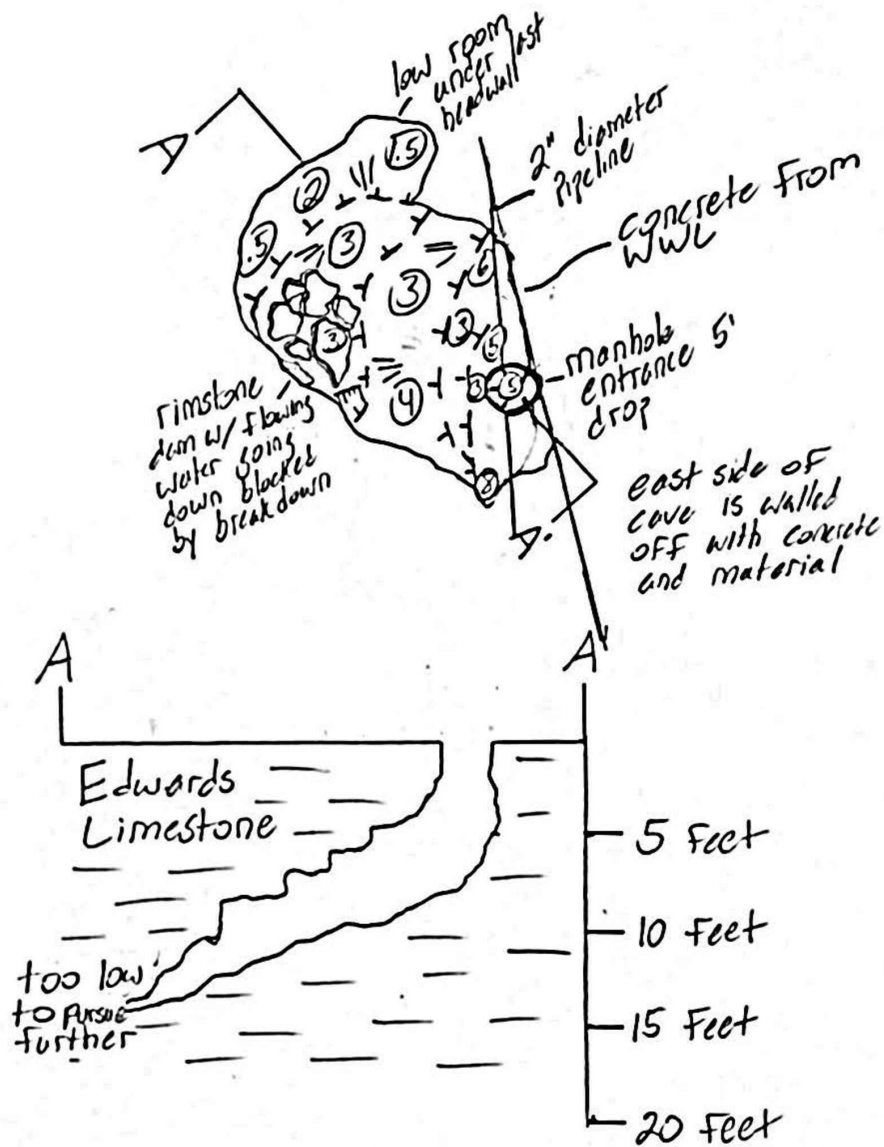 low room
under east
headwall
A
2" diameter
pipeline
concrete from
WWL
.5
2
.5
3
3
6
3
3
5
4
3
5
8
manhole
entrance 5'
drop
rimstone
dam w/ flowing
water going
down blocked
by breakdown
east side of
cave is walled
off with concrete
and material
A'
A
A'
Edwards
Limestone
5 feet
10 feet
15 feet
20 feet
too low
to pursue
further